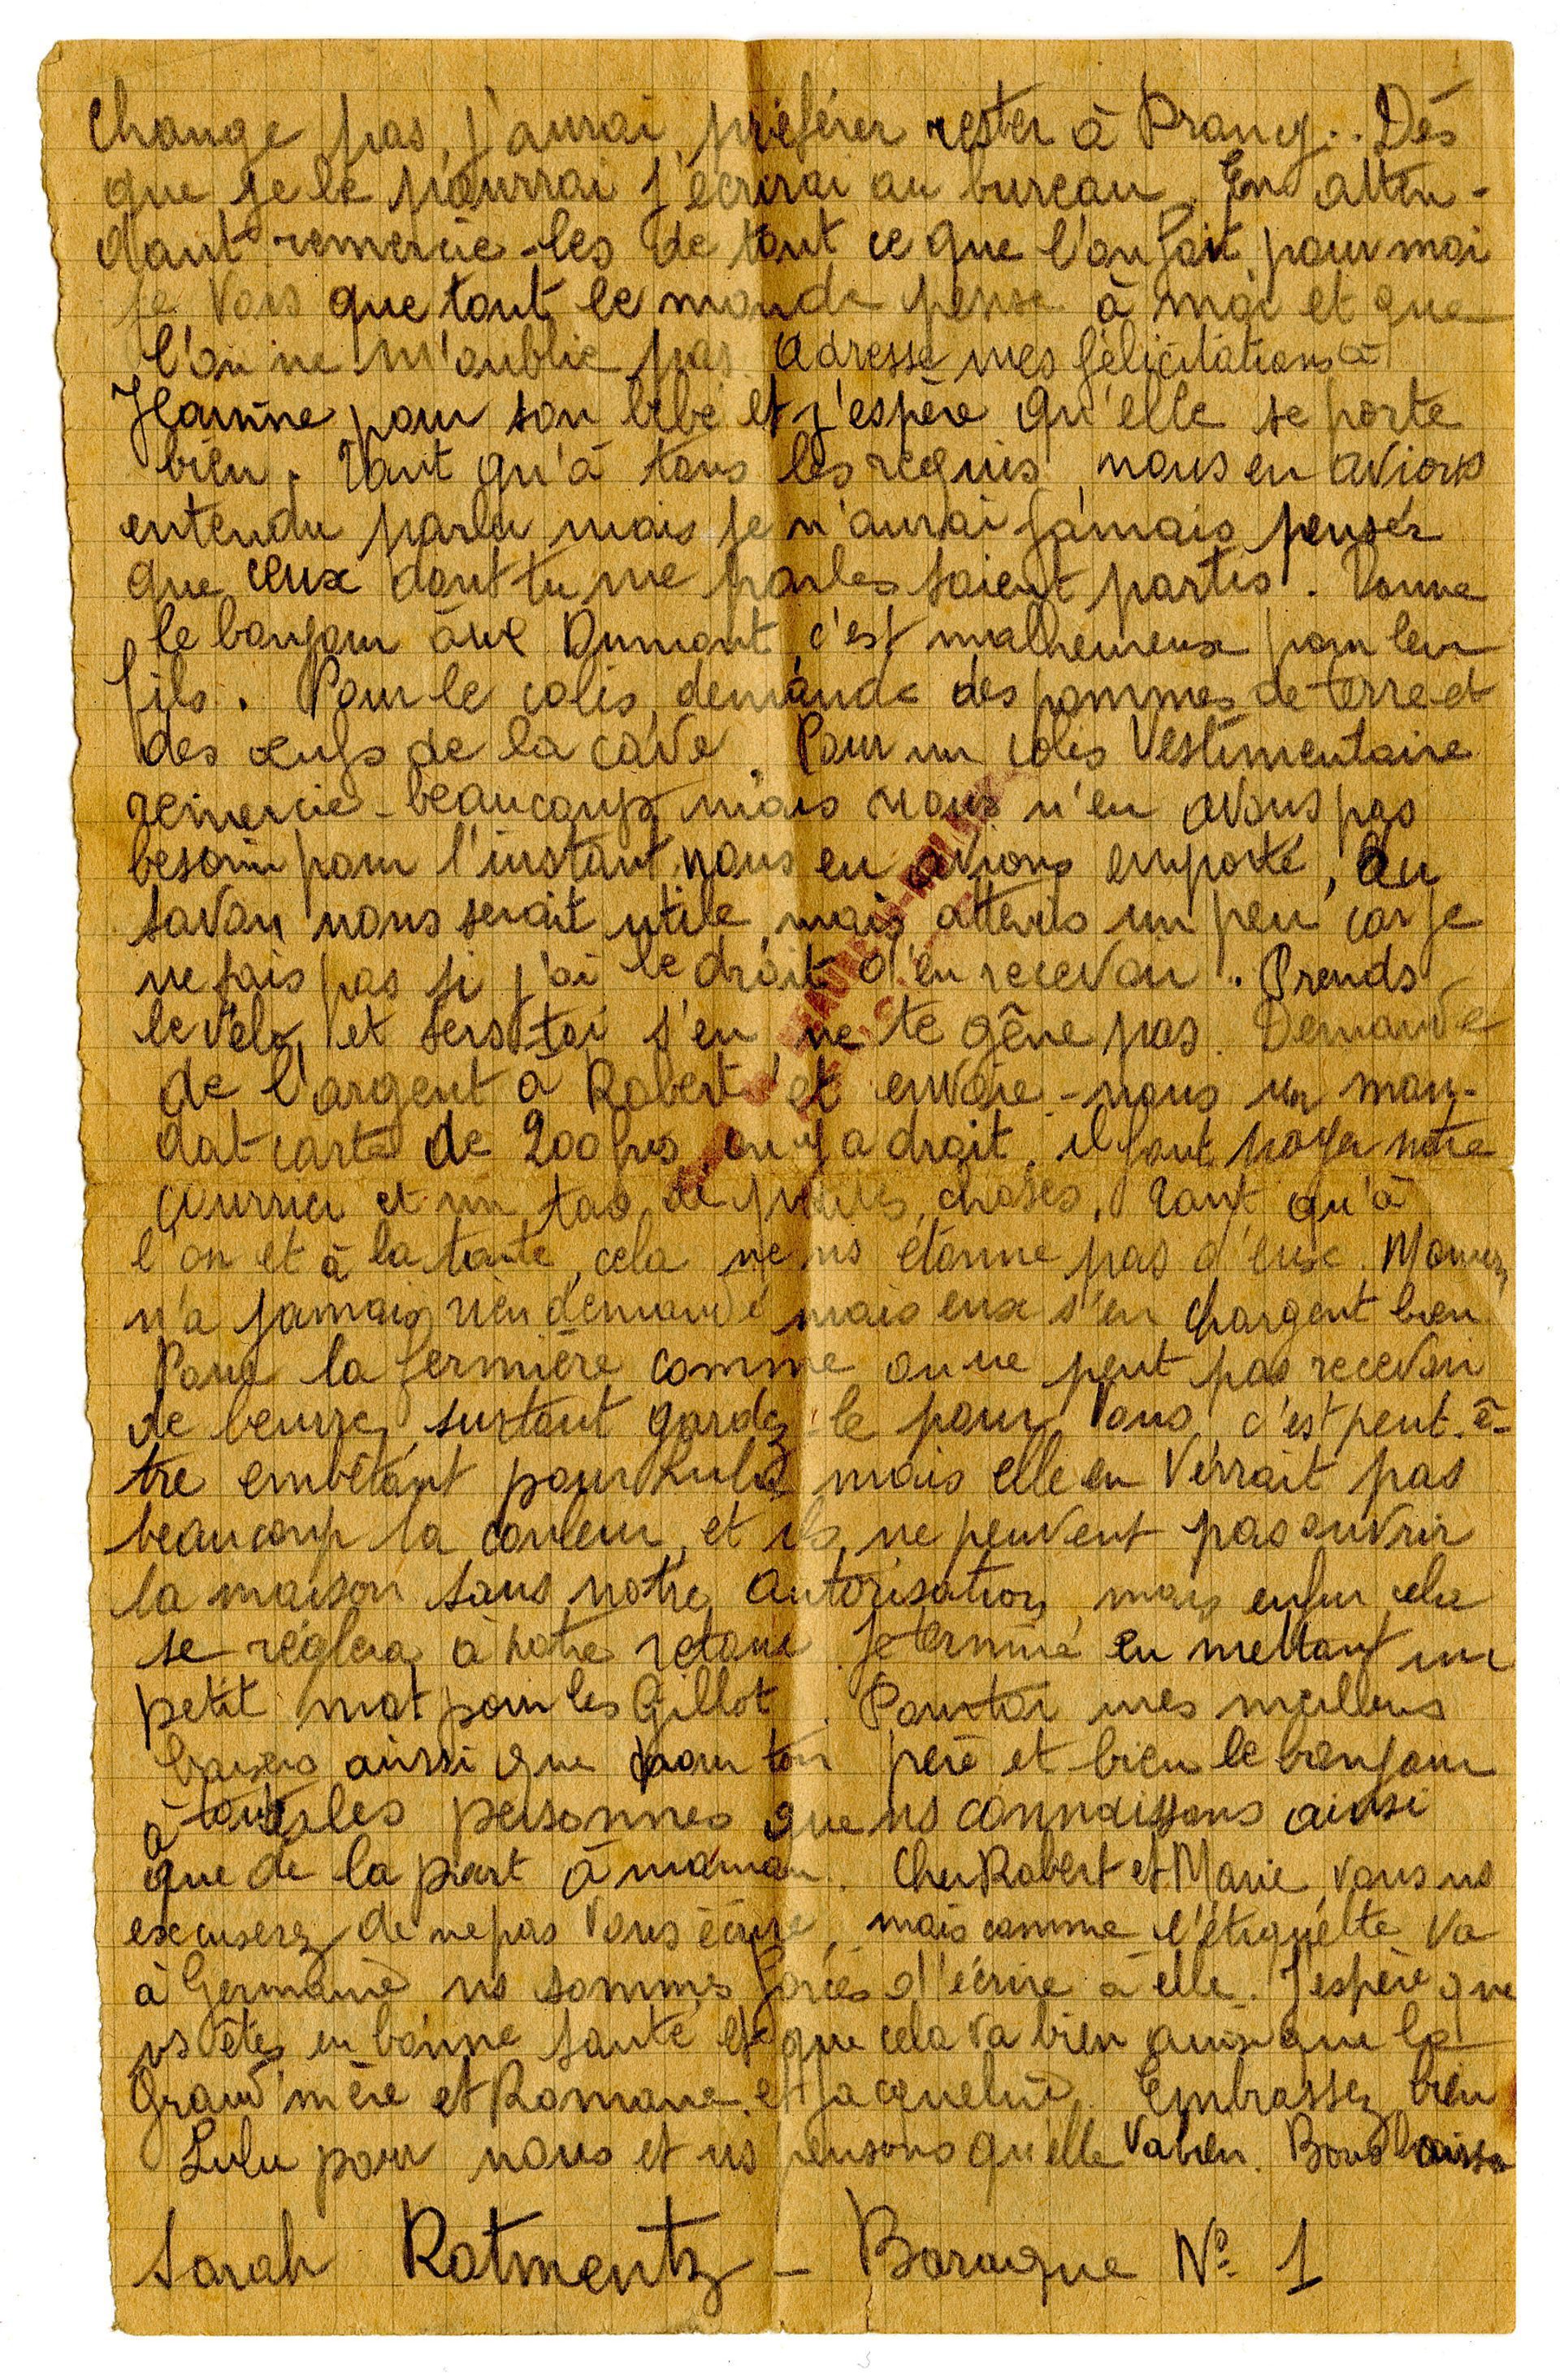 change pas, j'aurai préférer rester à Drancy.. Dès
que je le pourrai j'écrirai au bureau. En atten-
dant remercie-les de tout ce que l'on fait pour moi
je vois que tout le monde pense à moi et que
l'on ne m'oublie pas. Adresse mes félicitations à
Jeannine pour son bébé et j'espère qu'elle se porte
bien. Tant qu'à tous les requis, nous en avions
entendu parler mais je n'aurai jamais penser
que ceux dont tu me parles soient partis. Donne
le bonjour aux Dumont, c'est malheureux pour leur
fils. Pour le colis, demande des pommes de terre et
des œufs de la cave. Pour un colis vestimentaire
remercie-beaucoup mais nous n'en avons pas
besoin pour l'instant, nous en avions emporté, du
savon nous serait utile mais attends un peu car je
ne sais pas si j'ai le droit d'en recevoir. Prends
le vélo, et sers-toi s'en, ne te gêne pas. Demande
de l'argent à Robert et envoie-nous un man-
dat carte de 200 frs, on y a droit, il faut payer notre
courrier et un tas de petites choses. Tant qu'à
l'on et à la tante, cela ne ns étonne pas d'eux.
n'a jamais rien demandé mais eux s'en chargent bien
Pour la fermière comme on ne peut pas recevoir
de beurre, surtout gardez-le pour vous, c'est peut-ê-
tre embêtant pour Lulu mais elle en verrait pas
beaucoup la couleur, et ils ne peuvent pas ouvrir
la maison sans notre autorisation, mais enfin cela
se réglera à notre retour. Je termine en mettant un
petit mot pour les Gillot. Pour toi mes meilleurs
baisers ainsi que pour ton père et bien le bonjour
à toutes les personnes que ns connaissons ainsi
que de la part à maman. Cher Robert et Marie, vous ns
excuserez de ne pas vous écrire, mais comme l'étiquette va
à Germaine ns sommes forcés d'écrire à elle. J'espère que
vs êtes en bonne santé et que cela va bien ainsi que la
Grand'mère et Romane et Jacqueline. Embrassez bien
Lulu pour nous et ns pensons qu'elle va bien. Bons baisers
Sarah Rotmentz - Baraque N° 1